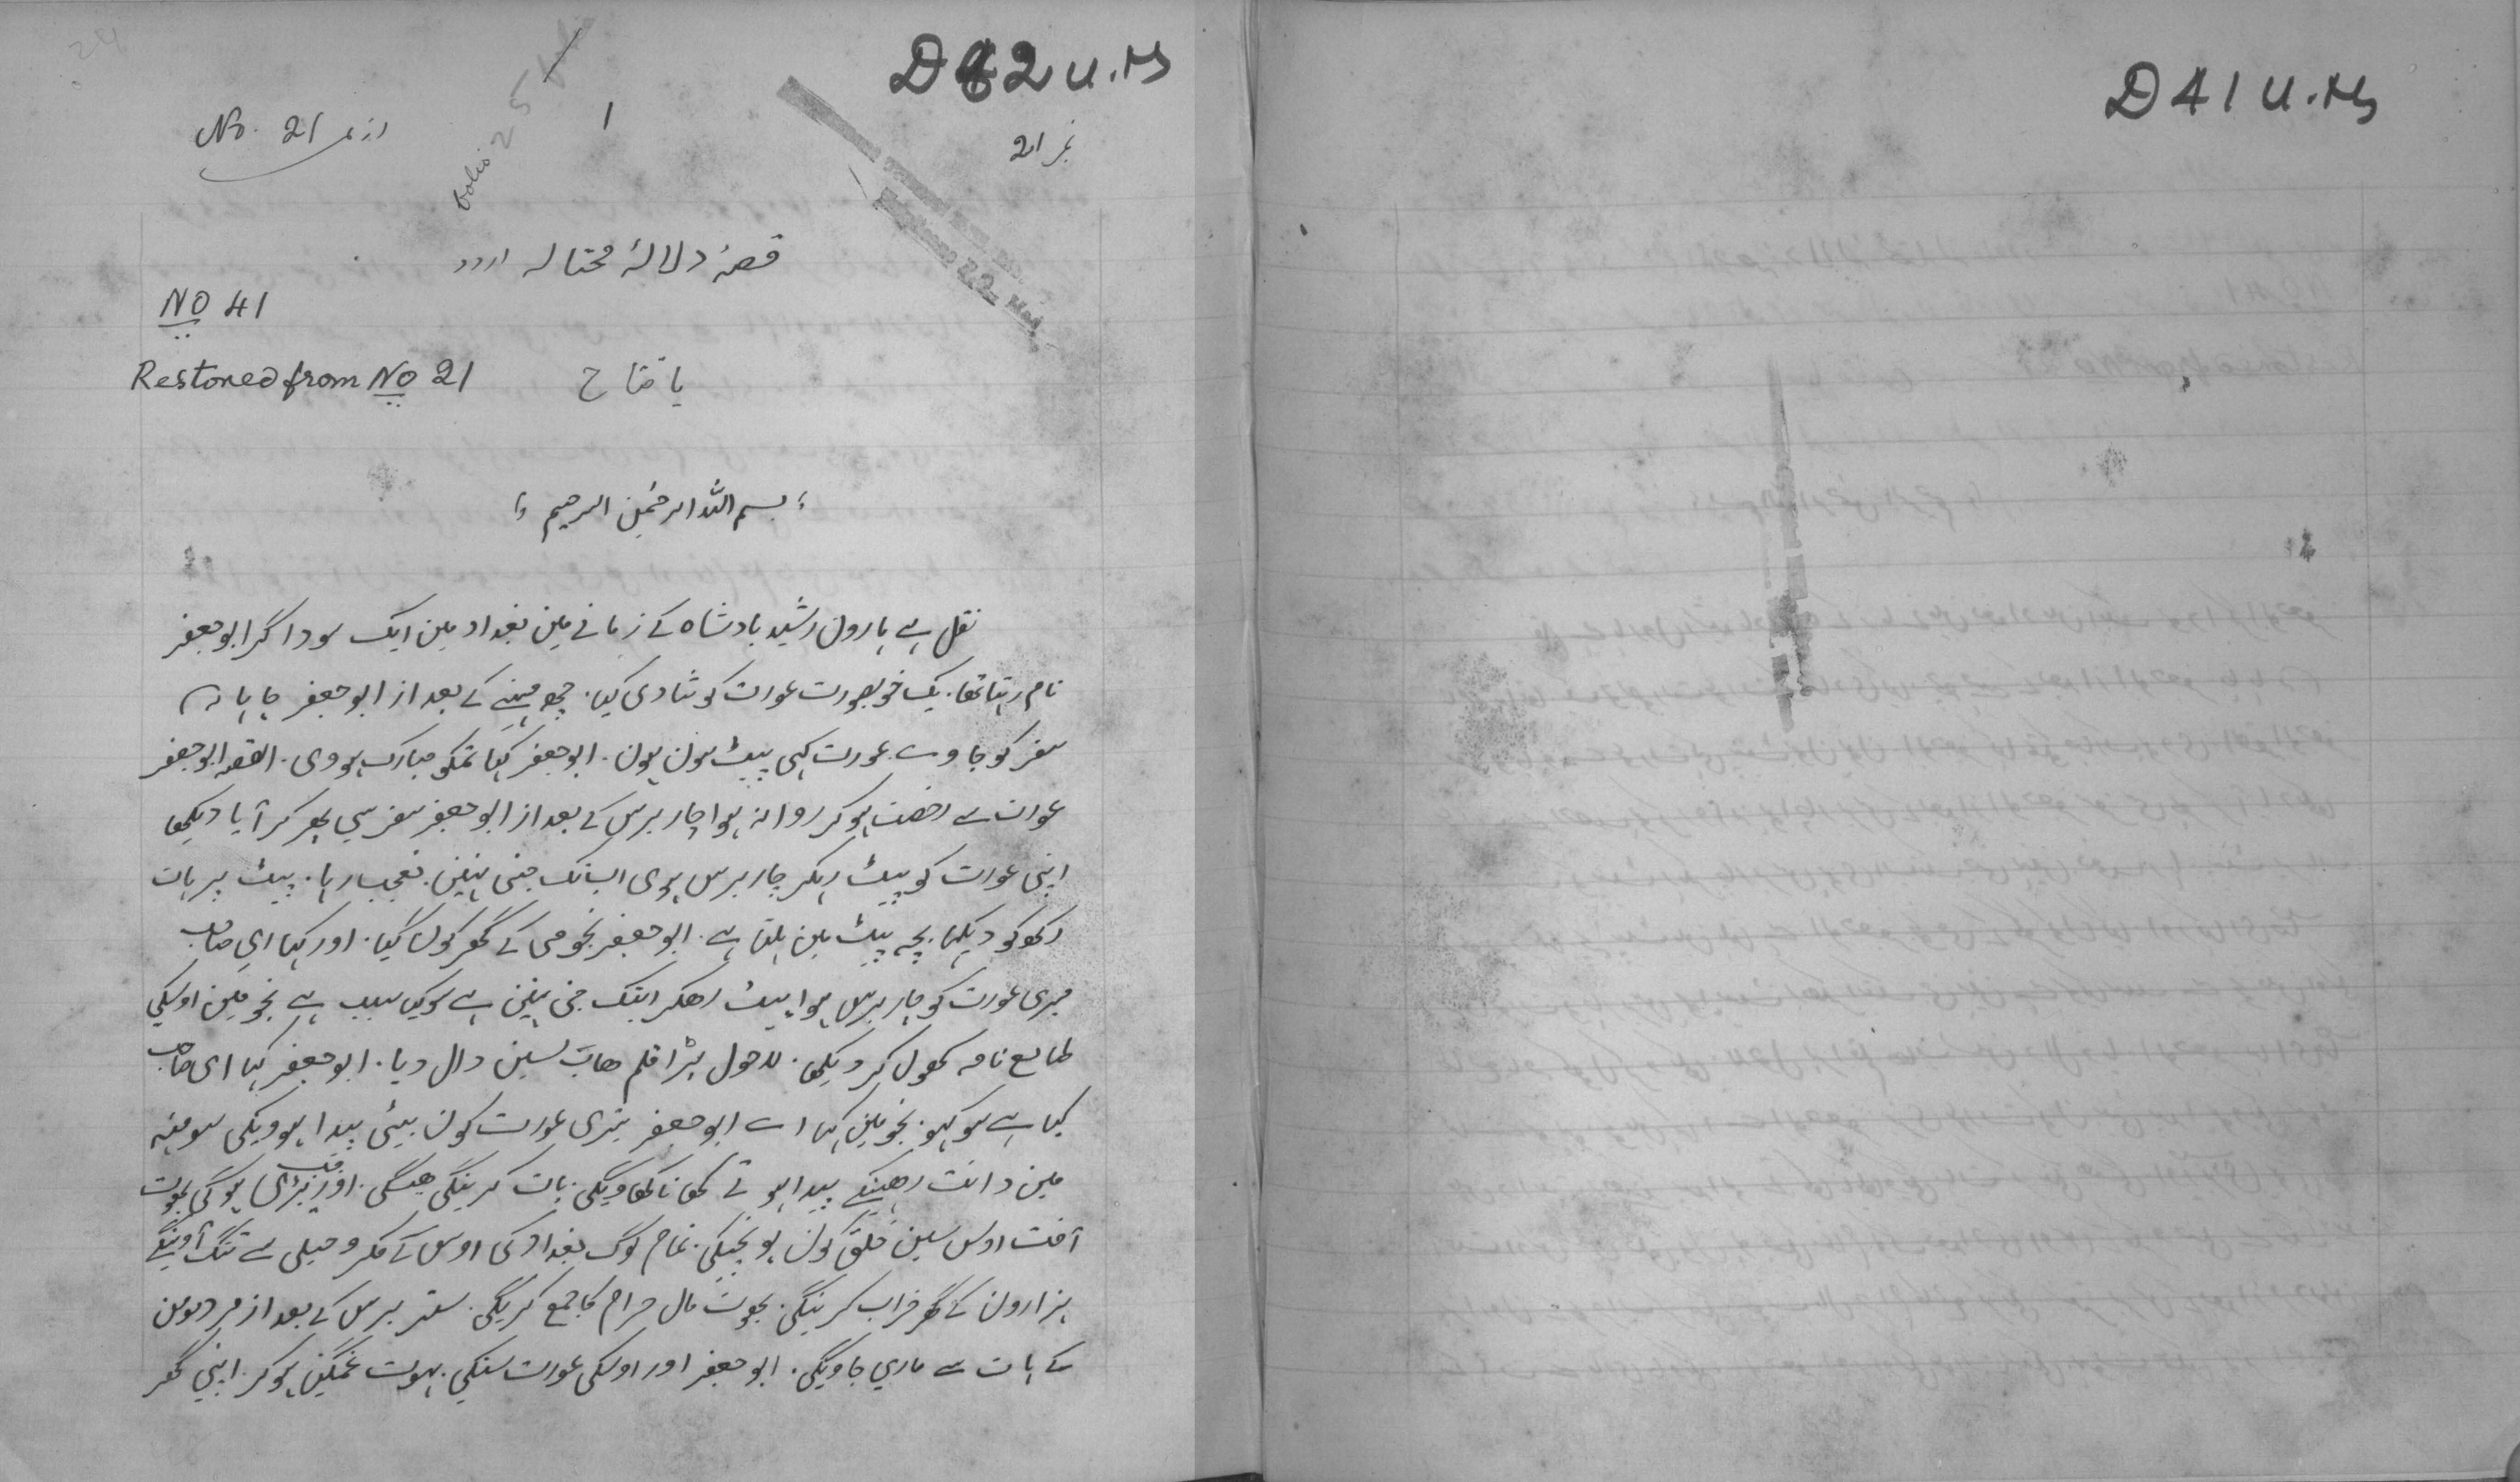 D 42 U.Ms
D 41 U.Ms
1
No. 21
نمبر 21
قصۂ دلالۂ محتالہ اردو
NO 41
Restored from NO 21
یا فتاح
بسم اللہ الرحمٰن الرحیم
نقل ہے ہارون رشید بادشاہ کے زمانے مین بغداد مین ایک سوداگر ابو جعفر
نام رہتا تھا. یک خوبصورت عورت کو شادی کیا. چھ مہنے کے بعد از ابو جعفر چاہا
سفر کو جاوے عورت کہی پیٹ سون ہون. ابو جعفر کہا تمکو مبارک ہووی. القصہ ابو جعفر
عورت سے رخصت ہو کر روانہ ہوا چار برس کے بعد از ابو جعفر سفر سی پھر کر آیا دیکھا
اپنی عورت کو پیٹ رہکر چار برس ہوی اب تک جنی نہین. تعجب رہا. پیٹ پر ہات
رکھو کو دیکہا بچہ پیٹ مین ہلتا ہے. ابو جعفر نجومی کے گھر کون گیا. اور کہا ای صاحب
میری عورت کو چار برس ہوا پیٹ رھکر ابتک جنی نہین ہے سو کیا سبب ہے نجومین اوسکی
طالع نامہ کھول کر دیکھا. لاحول پڑا قلم ھات سین دال دیا. ابو جعفر کہا ای صاحب
کیا ہے سو کہو. نجومین کہا اے ابو جعفر تیری عورت کون بیٹی پیدا ہوویگی سو منہ
مین دانت رھینگے پیدا ہوتے کھانا کھاویگی. بات کرینگی ھنسگی. اور جب بڑی ہوگی بہوت
آفت اوس سین خلق کون پونچیگی. تمام لوگ بغداد کی اوس کے مکر و حیلی سے تنگ آوینگے
ہزارون کے گھر خراب کرینگی. بھوت مال حرام کا جمع کریگی. ستر برس کے بعد از مردوین
کے ہات سے ماری جاویگی. ابو جعفر اور اوسکی عورت سنکی. بہوت غمگین ہو کر. اپنی گھر